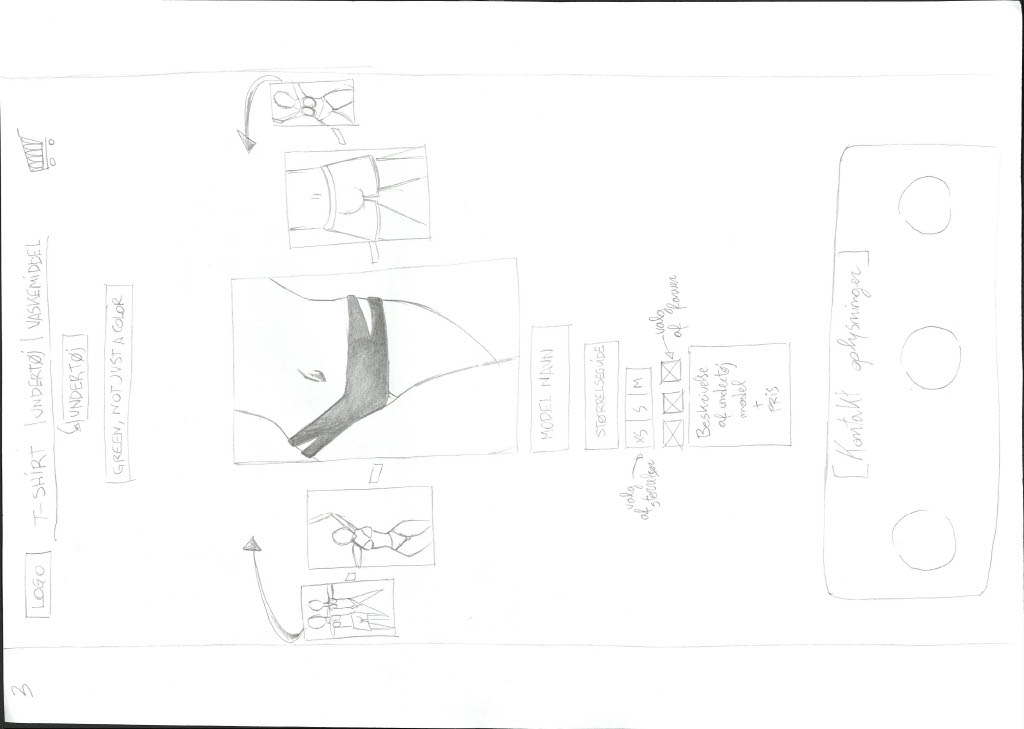 3
LOGO T-SHIRT | UNDERTØJ | VASKEMIDDEL
UNDERTØJ
GREEN, NOT JUST A COLOR
MODEL NAVN
STØRRELSEGUIDE
valg
af størrelser
XS S M
valg
af farver
Beskrivelse
af undertøj
model
+
PRIS
[Kontakt oplysninger]